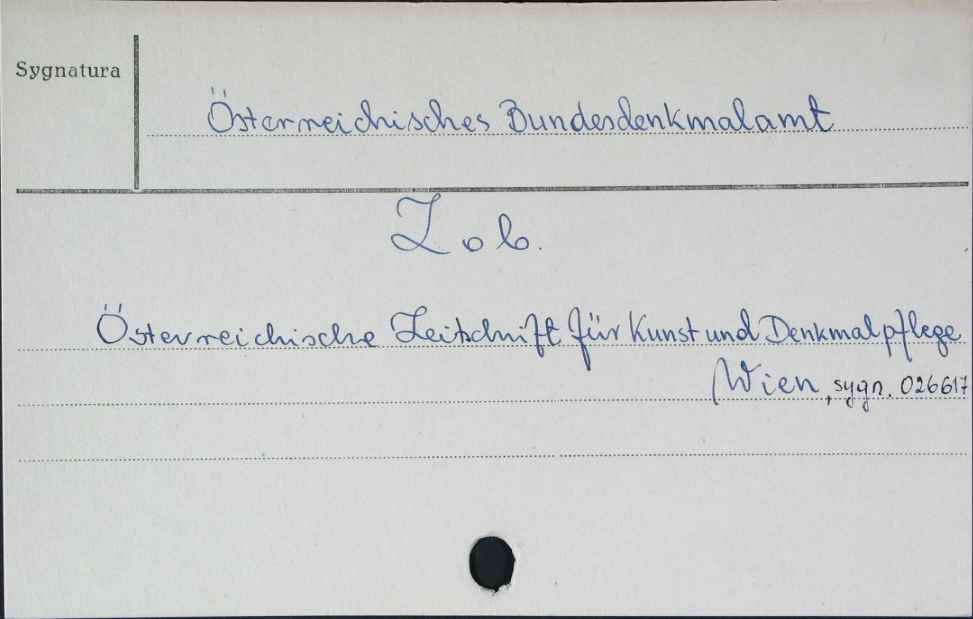 Sygnatura
Österreichisches Bundesdenkmalamt
Zob.
Österreichische Zeitschrift für Kunst und Denkmalpflege
Wien, sygn. 026617